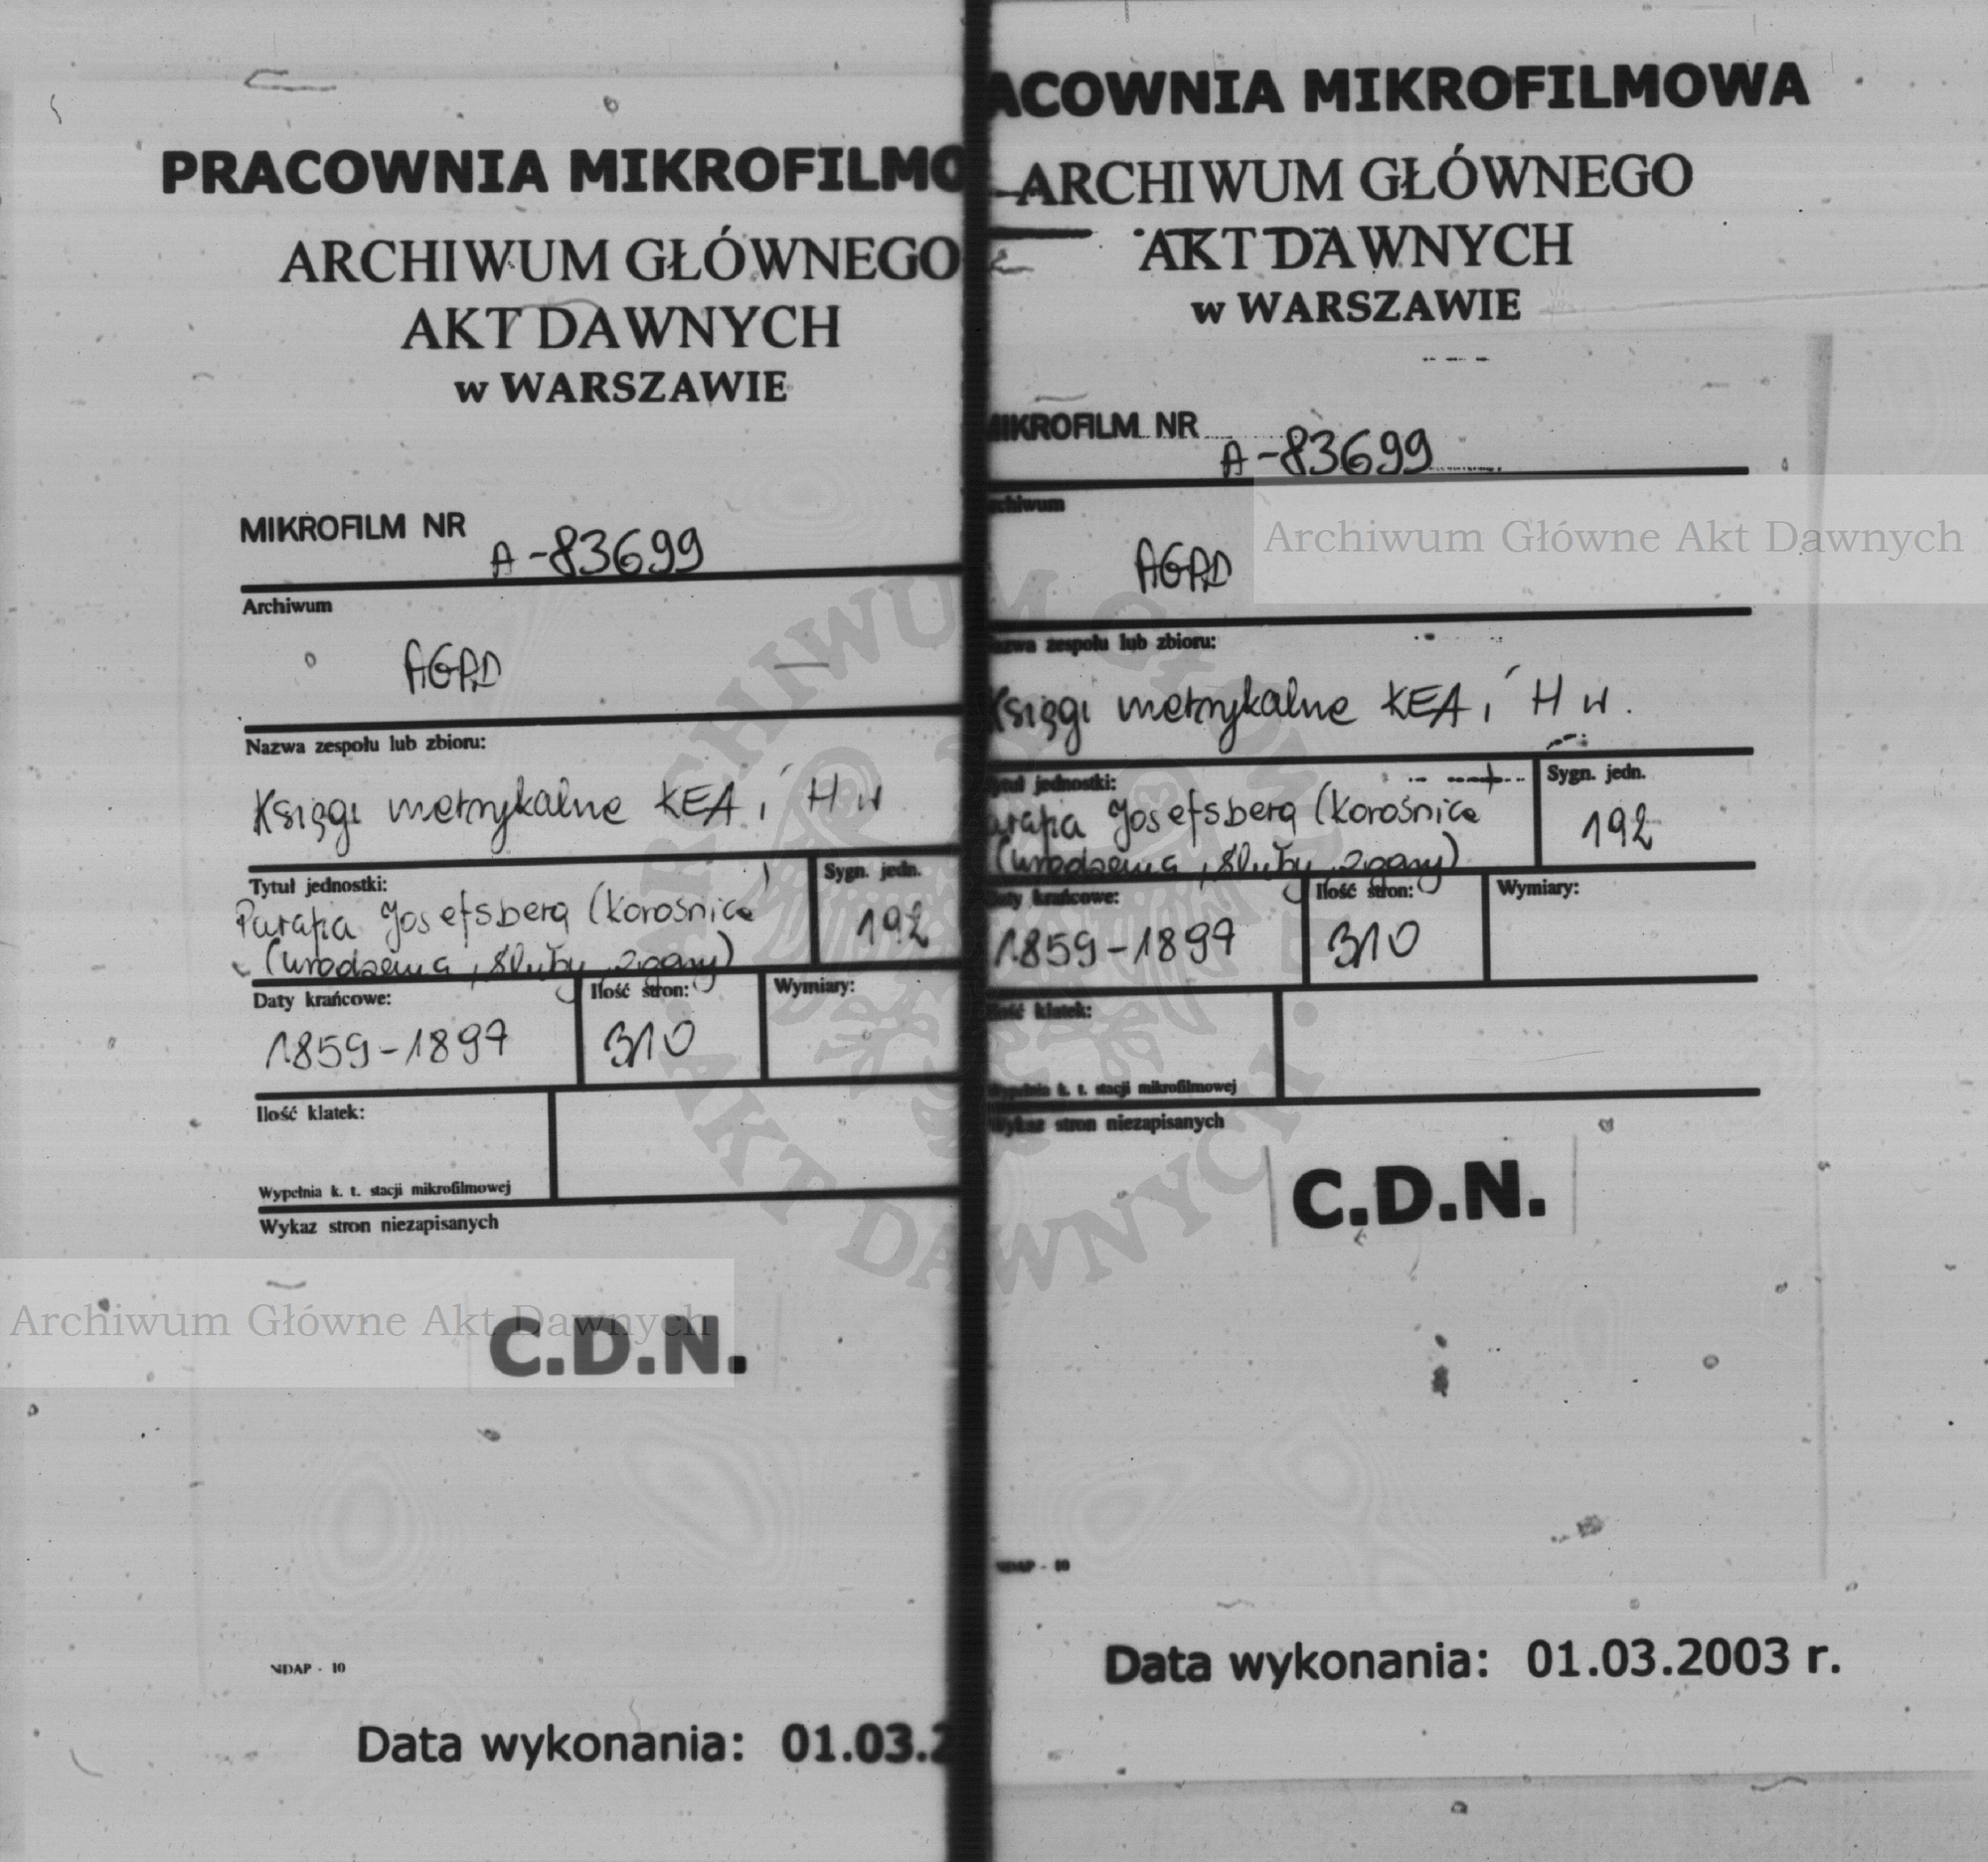 PRACOWNIA MIKROFILMO
ARCHIWUM GŁÓWNEGO
AKT DAWNYCH
w WARSZAWIE
MIKROFILM NR A-83699
Archiwum
AGAD
Nazwa zespołu lub zbioru:
Księgi metrykalne KEA i H w
Tytuł jednostki:
Parafia Josefsberg (Korośnica)
(urodzenia, śluby, zgony)
Sygn. jedn.
192
Daty krańcowe:
1859-1897
Ilość stron:
310
Wymiary:
Ilość klatek:
Wypełnia k. t. stacji mikrofilmowej
Wykaz stron niezapisanych
Archiwum Główne Akt Dawnych
C.D.N.
NDAP - 10
Data wykonania: 01.03.2
ACOWNIA MIKROFILMOWA
ARCHIWUM GŁÓWNEGO
AKT DAWNYCH
w WARSZAWIE
MIKROFILM NR A-83699
chiwum
Archiwum Główne Akt Dawnych
AGAD
azwa zespołu lub zbioru:
Księgi metrykalne KEA i H w.
tuł jednostki:
arafia Josefsberg (Korośnica
(urodzenia, śluby, zgony)
Sygn. jedn.
192
aty krańcowe:
1859-1897
Ilość stron:
310
Wymiary:
ość klatek:
Wypełnia k. t. stacji mikrofilmowej
Wykaz stron niezapisanych
C.D.N.
NDAP - 10
Data wykonania: 01.03.2003 r.
ARCHIWUM GŁÓWNE
AKT DAWNYCH